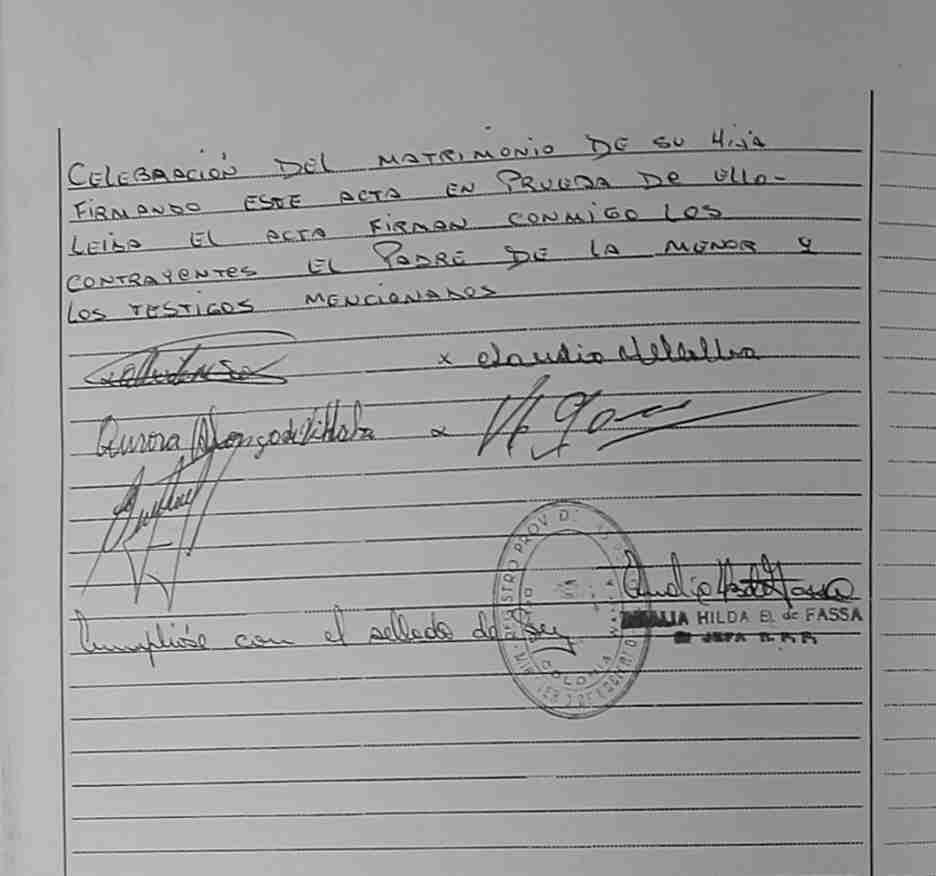 CELEBRACIÓN DEL MATRIMONIO DE SU HIJA
FIRMANDO ESTE ACTA EN PRUEBA DE ELLO-
LEIDA EL ACTA FIRMAN CONMIGO LOS
CONTRAYENTES EL PADRE DE LA MENOR Y
LOS TESTIGOS MENCIONADOS
x Claudio
Aurora de Villalba x
PROV. D
Cumplióse con el sellado de ley
HILDA B. de FASSA
JEFA
COLONIA